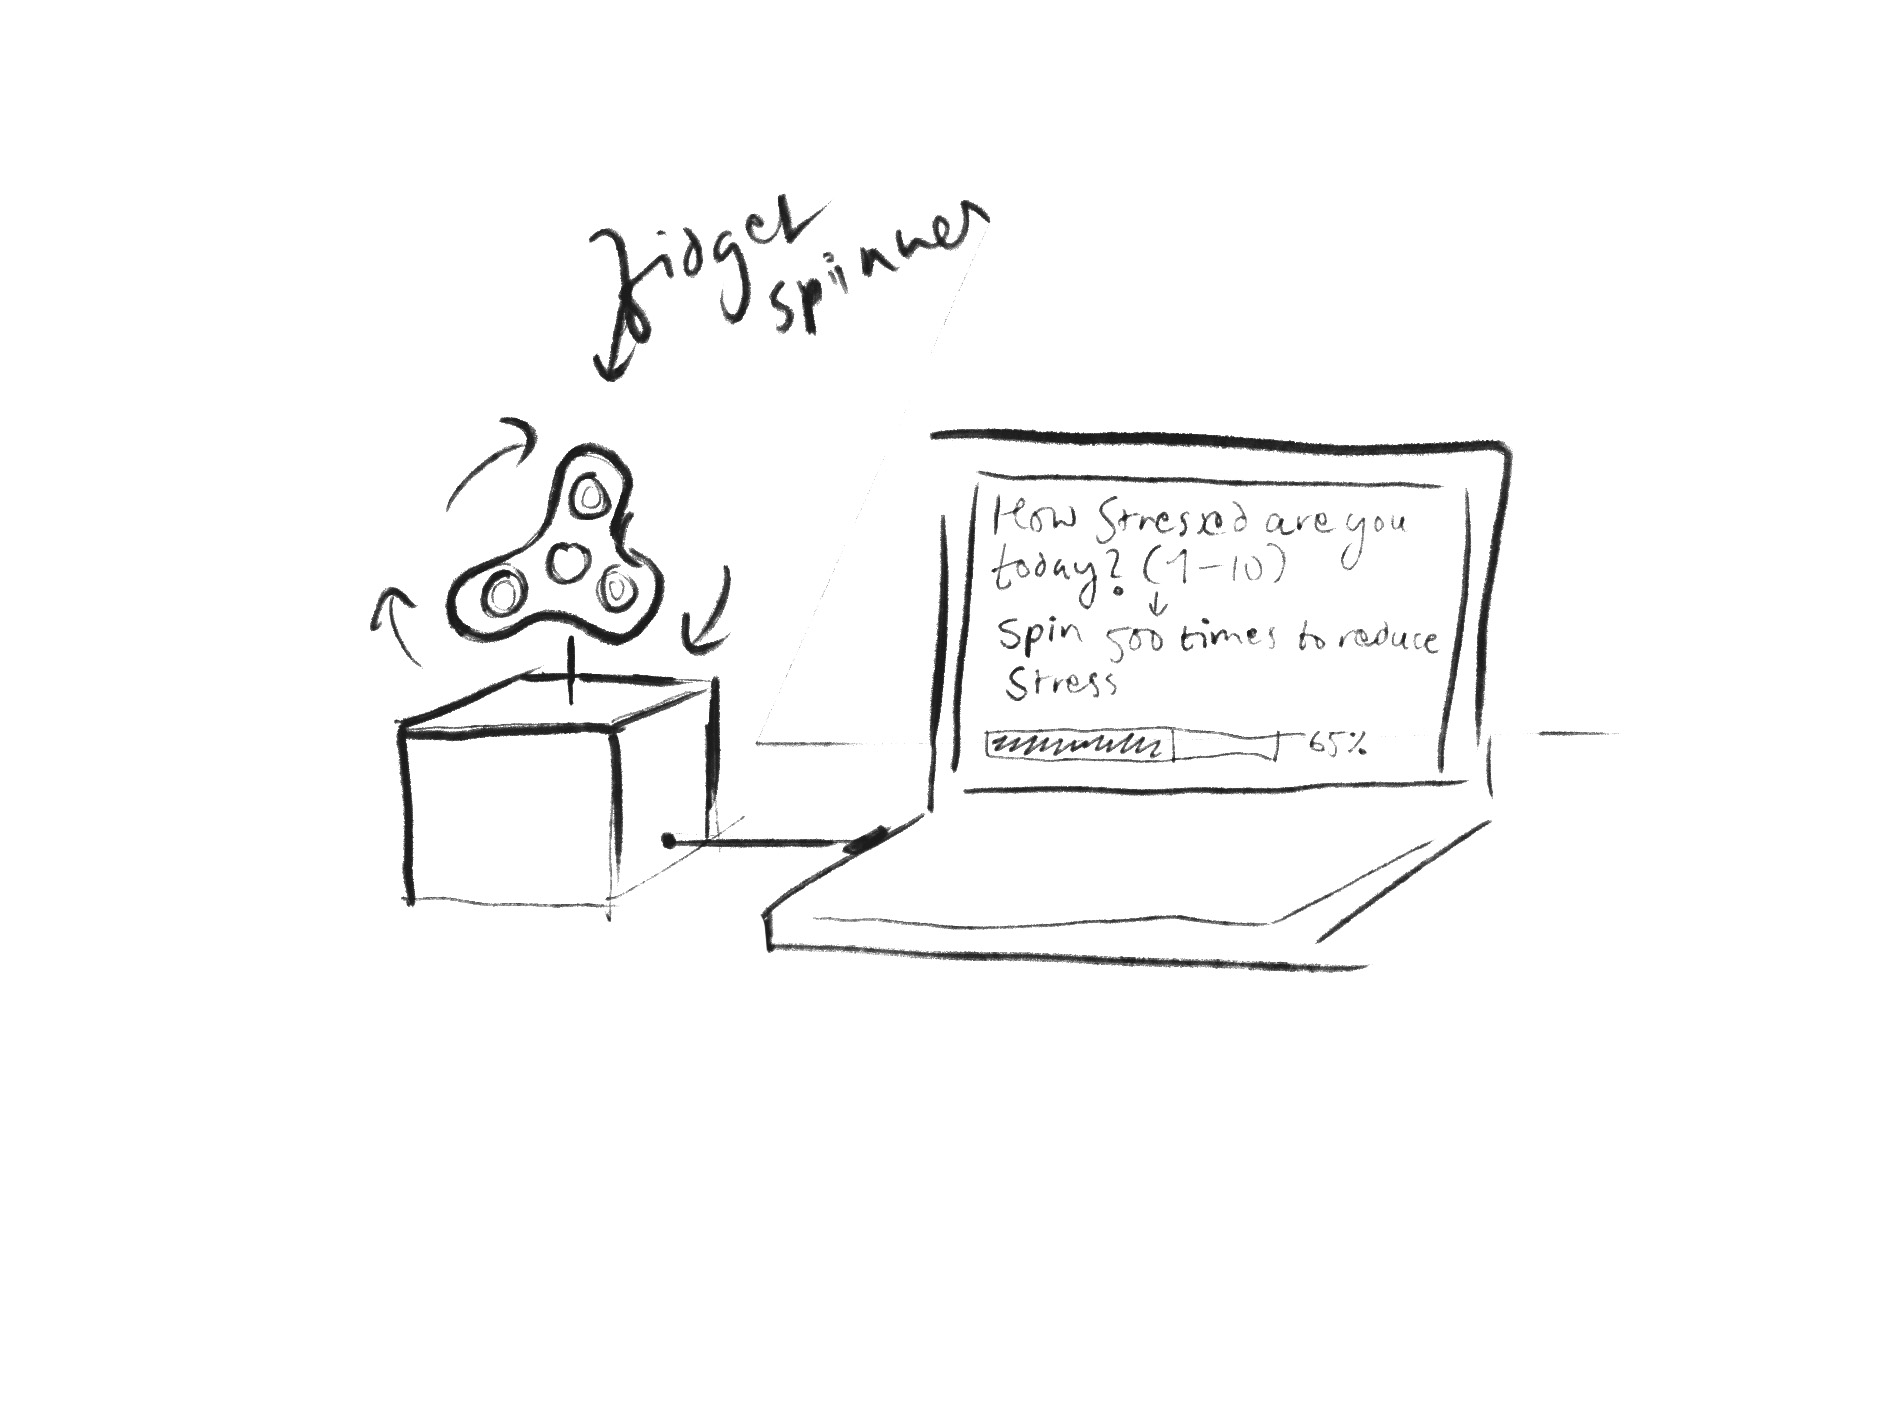 fidget
spinner
How stressed are you
today? (1-10)
Spin 500 times to reduce
stress
65%